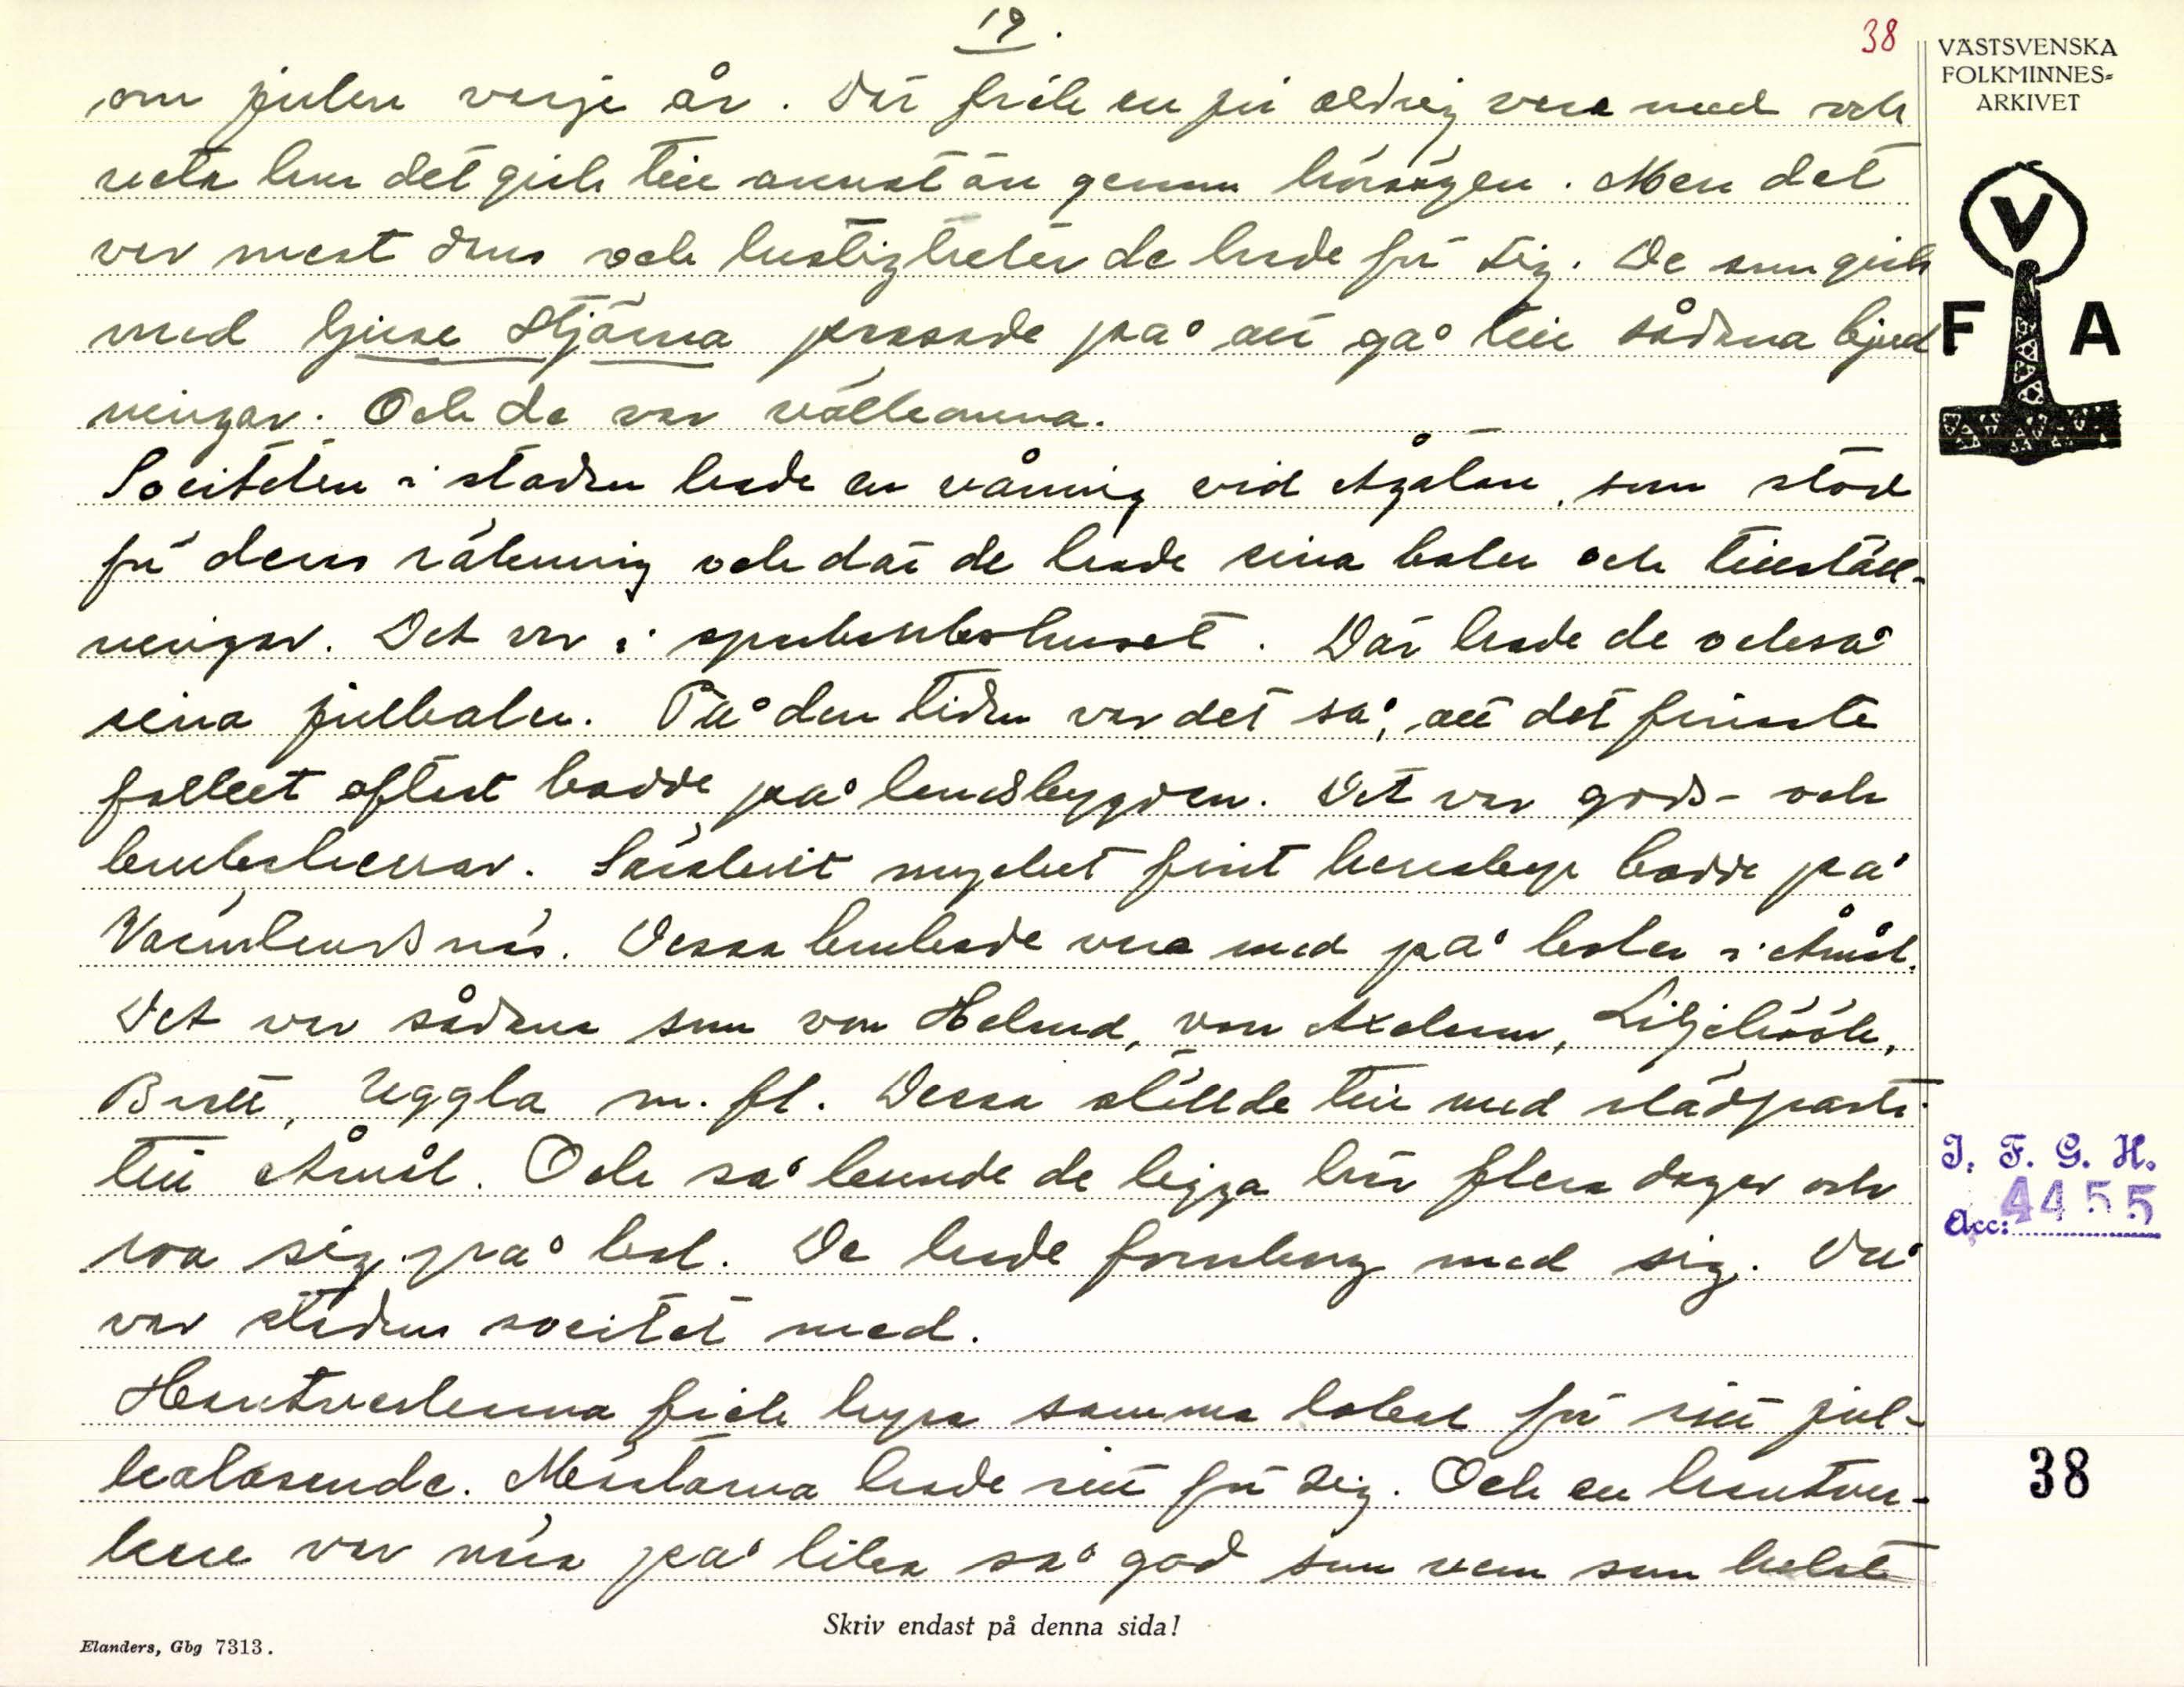 19.
38
VÄSTSVENSKA
FOLKMINNES=
ARKIVET
om julen varje år. Där fick en ju aldrig vara med och
veta hur det gick till annat än genom hörsägen. Men det
var mest dans och lustigheter de hade för sig. De som gick
med ljusa Stjärna passade på att gå till sådana bjud
ningar. Och de var välkomna.
Societeten i staden hade en våning vid Ågatan, som stod
för deras räkning och där de hade sina baler och tillställ-
ningar. Det var i sparbankshuset. Där hade de också
sina julbaler. På den tiden var det så, att det finaste
folket oftast bodde på landsbygden. Det var gods- och
brukherrar. Särskilt mycket fint herrskap bodde på
Värmlandsnäs. Dessa brukade vara med på baler i Åmål.
Det var sådana som von Holund, von Axelson, Liljehöök,
Bratt, Uggla m. fl. Dessa ställde till med slädparti
till Åmål. Och så kunde de ligga här flera dagar och
roa sig på bal. De hade formbeng med sig. Då
var stadens societet med.
Hantverkarna fick hyra samma lokal för sitt jul-
kalasende. Mästarna hade sitt för sig. Och en hantver-
kare var nära på lika så god som vem som helst
V
F A
I. F. G. H.
Acc: 4455
38
Skriv endast på denna sida!
Elanders, Gbg 7313.